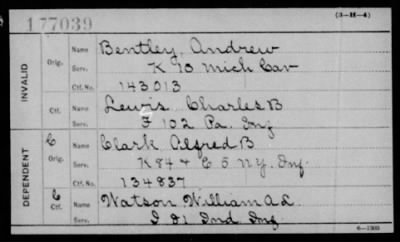 177039
(3-H-4)
INVALID
Orig.
Name Bentley, Andrew
Serv. K 10 Mich Cav
Ctf. No. 143013
Ctf.
Name Lewis Charles B
Serv. F 102 Pa. Inf
DEPENDENT
C
Orig.
Name Clark Alfred B
Serv. K 84 + E 5 N.Y. Inf.
Ctf. No. 134837
C
Ctf.
Name Watson William A.L.
Serv. I 81 Ind Inf